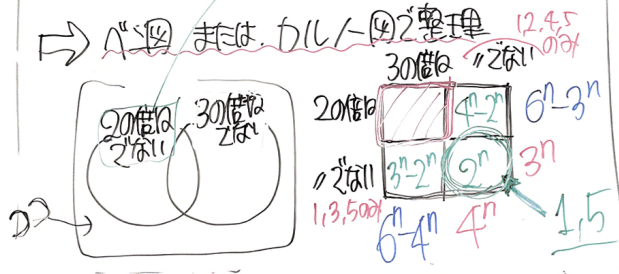 ⇒ ベン図 または、カルノー図で整理
1,2,4,5のみ
3の倍は
〃でない
2の倍はでない
3の倍はでない
2の倍は
4ⁿ-2ⁿ
6ⁿ-3ⁿ
〃でない
3ⁿ-2ⁿ
2ⁿ
3ⁿ
1,3,5のみ
6ⁿ-4ⁿ
4ⁿ
1,5